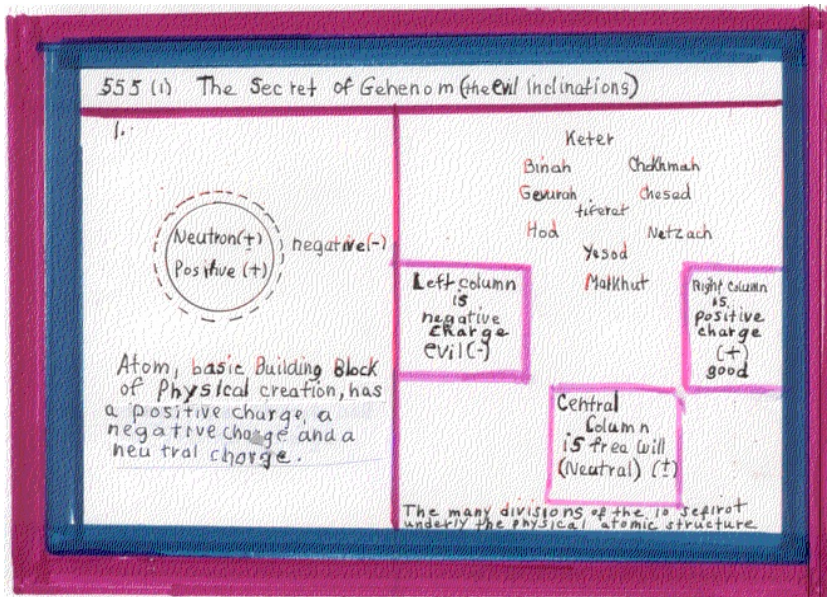 555 (1) The Secret of Gehenom (the evil inclinations)
1.
Neutron(±)
Positive (+)
negative(-)
Atom, basic Building Block
of Physical creation, has
a positive charge, a
negative charge and a
neutral charge.
Keter
Binah Chokhmah
Gevurah Chesed
tiferet
Hod Netzach
Yesod
Malkhut
Left column
is
negative
charge
evil (-)
Right Column
is
positive
charge
(+)
good
Central
Column
is free will
(Neutral) (±)
The many divisions of the 10 sefirot
underly the physical atomic structure